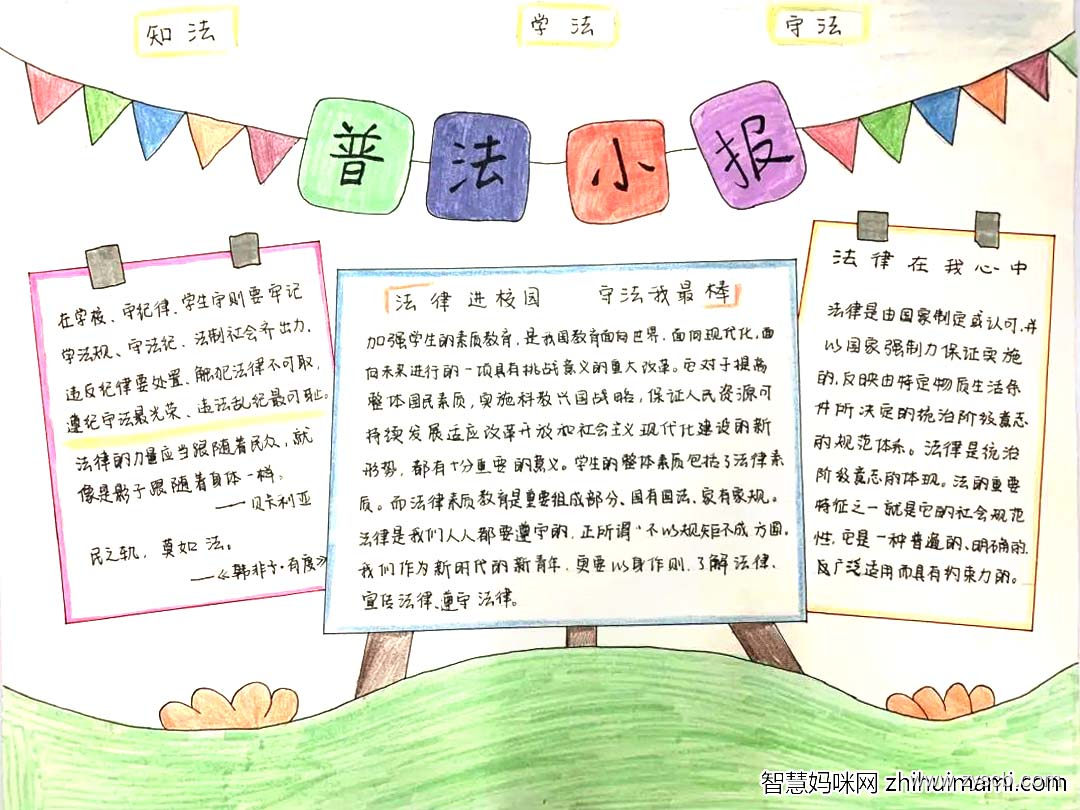 知法
学法
守法
普法小报
在学校、守纪律、学生守则要牢记
学法规、守法纪、法制社会齐出力,
违反纪律要处置、触犯法律不可取,
遵纪守法最光荣、违法乱纪最可耻。
法律的力量应当跟随着民众,就
像是影子跟随着身体一样,
——贝卡利亚
民之轨,莫如法。
——《韩非子·有度》
法律进校园 守法我最棒
加强学生的素质教育,是我国教育面向世界,面向现代化,面
向未来进行的一项具有挑战意义的重大改革。它对于提高
整体国民素质,实施科教兴国战略,保证人民资源可
持续发展适应改革开放和社会主义现代化建设的新
形势,都有十分重要的意义。学生的整体素质包括了法律素
质。而法律素质教育是重要组成部分、国有国法、家有家规。
法律是我们人人都要遵守的,正所谓“不以规矩不成方圆。
我们作为新时代的新青年,更要以身作则,了解法律、
宣传法律、遵守法律。
法律在我心中
法律是由国家制定或认可,并
以国家强制力保证实施
的,反映由特定物质生活条
件所决定的统治阶级意志
的规范体系。法律是统治
阶级意志的体现。法的重要
特征之一就是它的社会规范
性,它是一种普通的、明确的,
及广泛适用而具有约束力的。
智慧妈咪网 zhihuimami.com